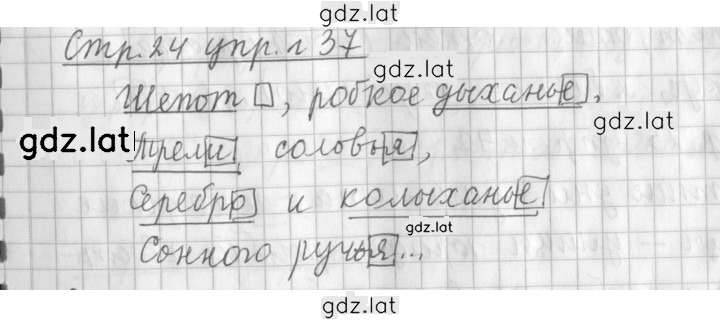 gdz.lat
Стр. 24 упр. г 37
gdz.lat
Шепот, робкое дыханье,
gdz.lat
gdz.lat
Трели соловья,
Серебро и колыханье
gdz.lat
Сонного ручья...
gdz.lat